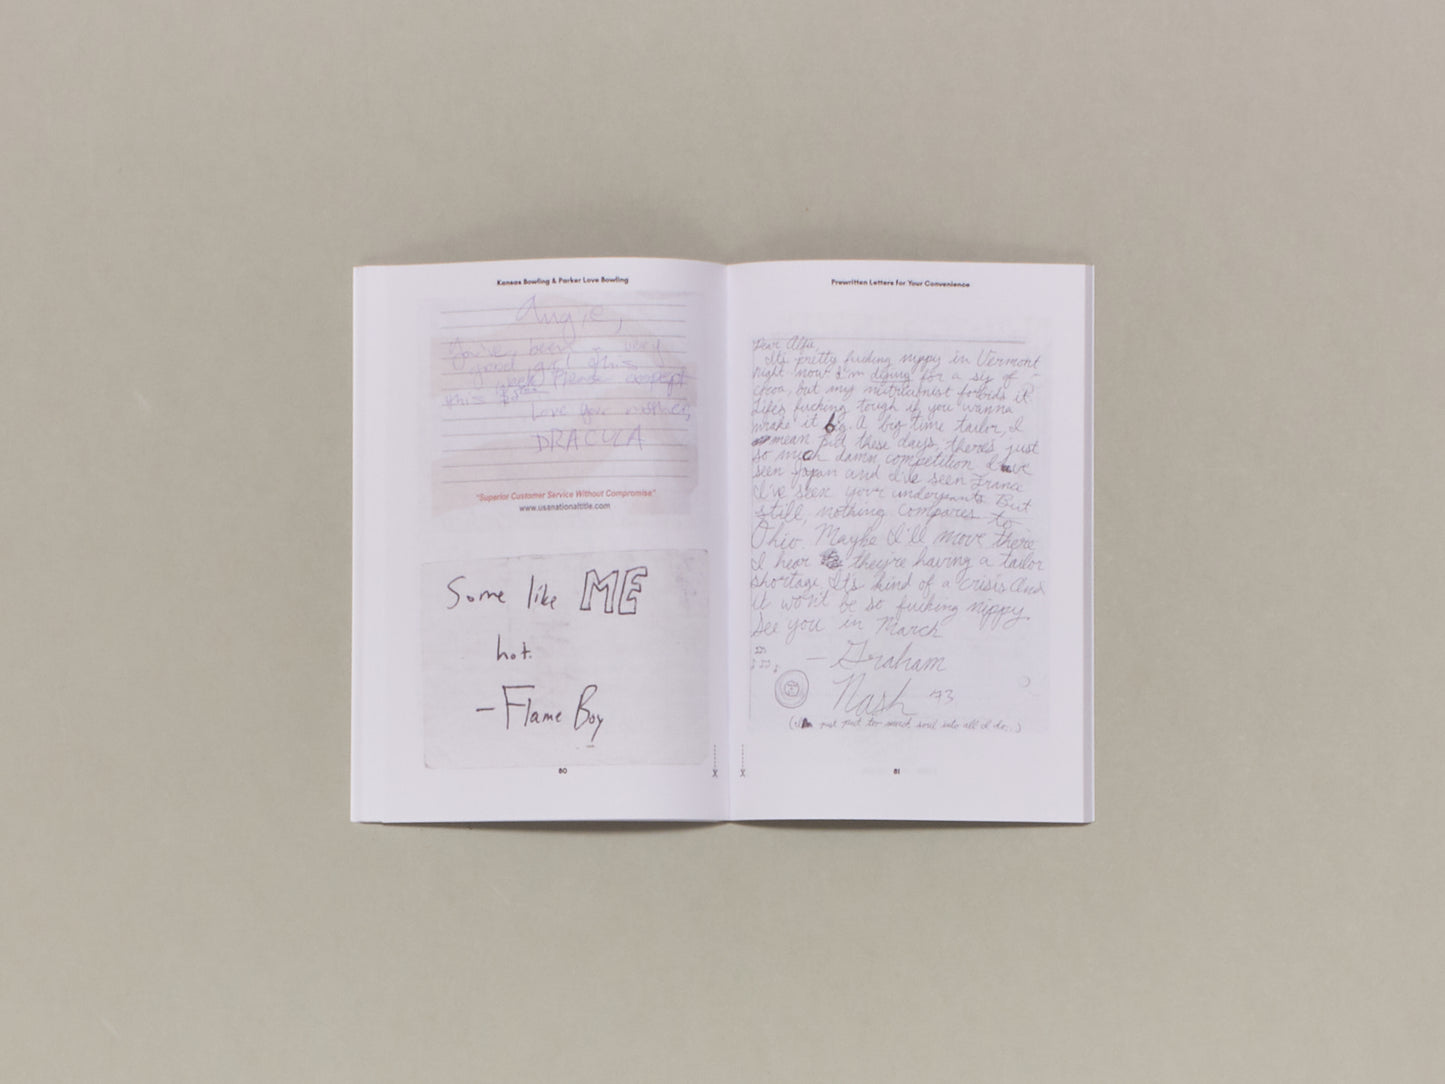 Kansas Bowling & Parker Love Bowling
Angie,
You've been a very
good girl this
week. Please accept
this
Love your mother,
DRACULA
"Superior Customer Service Without Compromise"
www.usanationaltitle.com
Some like ME
hot.
- Flame Boy
80
Prewritten Letters for Your Convenience
Dear Alfie,
It's pretty fucking nippy in Vermont
right now. I'm dying for a sip of
cocoa, but my nutritionist forbids it.
Life's fucking tough if you wanna
make it big. A big time tailor, I
mean. But these days, there's just
so much damn competition. I've
seen Japan and I've seen France
I've seen your underpants. But
still, nothing compares to
Ohio. Maybe I'll move there
I hear they're having a tailor
shortage. It's kind of a crisis. And
it won't be so fucking nippy.
See you in March
- Graham
Nash 73
(I just put too much soul into all I do..)
81